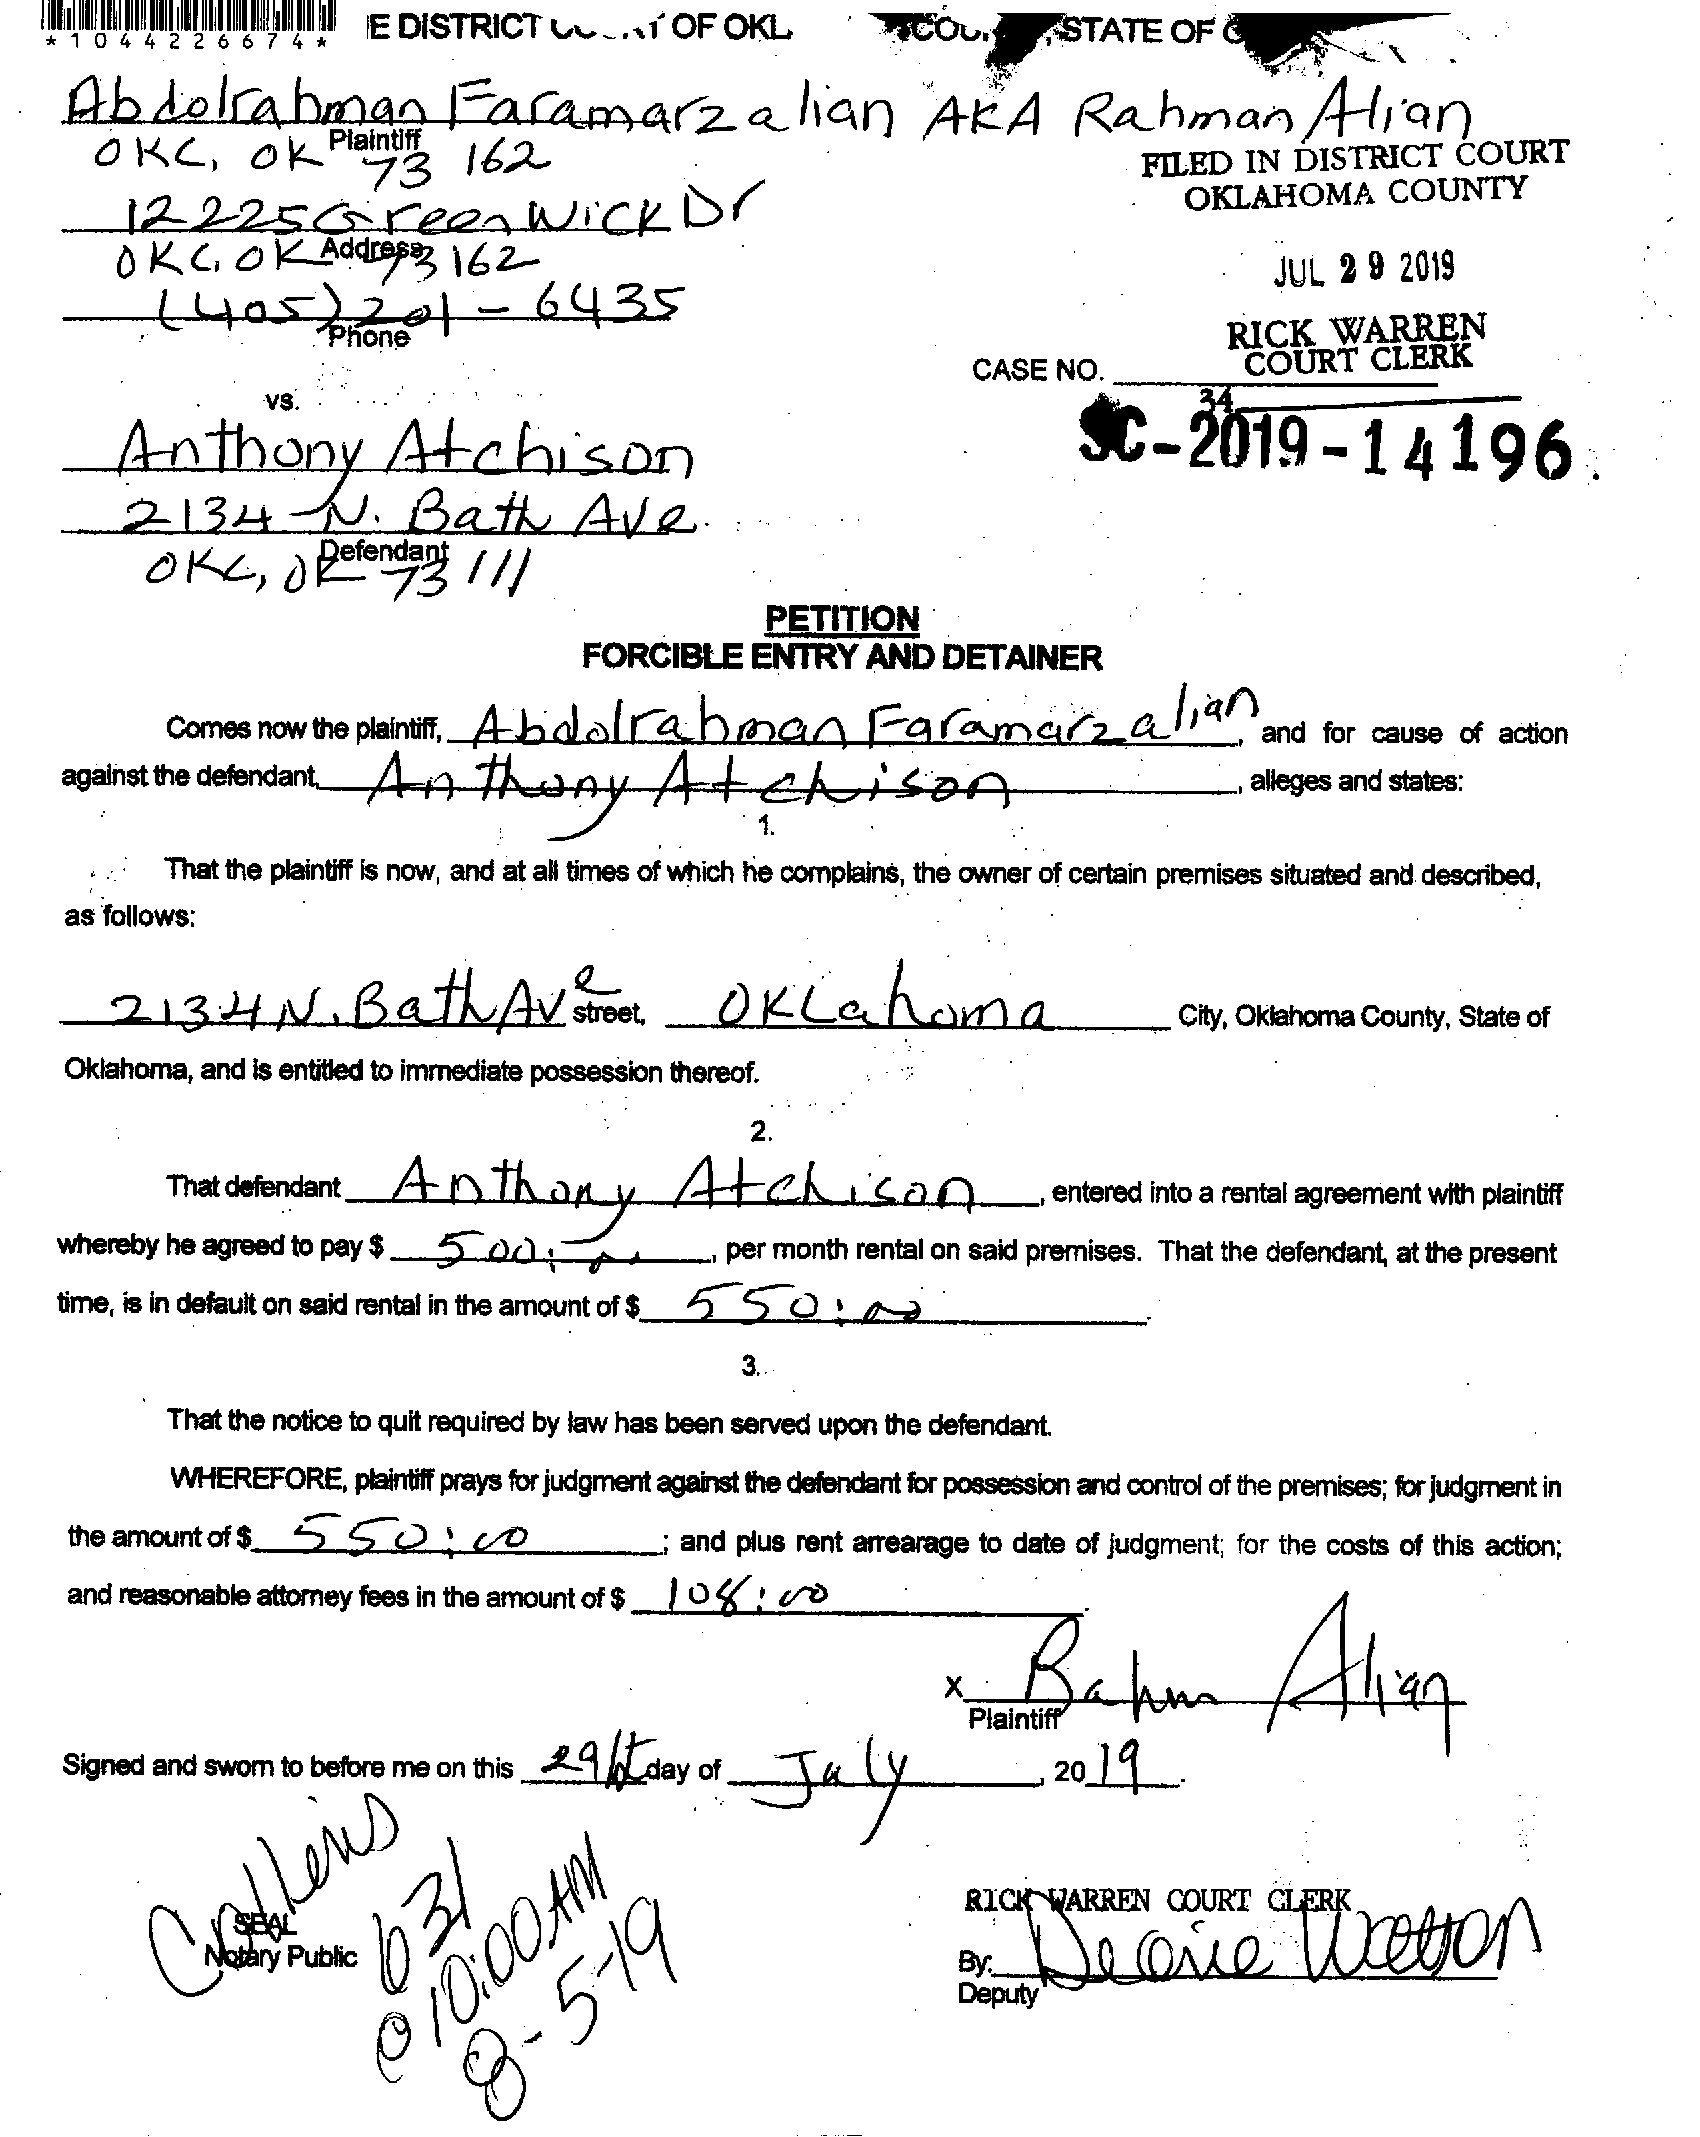 *1044226674*
E DISTRICT OF OKL STATE OF
Abdolrahman Faramarzalian AKA Rahman Alian
Plaintiff
OKC, OK 73162
FILED IN DISTRICT COURT
OKLAHOMA COUNTY
12225 Greenwick Dr
Address
OKC, OK 73162
JUL 29 2019
(405) 201-6435
Phone
RICK WARREN
COURT CLERK
CASE NO.
34
SC-2019-14196
vs.
Anthony Atchison
2134 N. Bath Ave.
Defendant
OKC, OK 73111
PETITION
FORCIBLE ENTRY AND DETAINER
Comes now the plaintiff, Abdolrahman Faramarzalian, and for cause of action
against the defendant, Anthony Atchison, alleges and states:
1.
That the plaintiff is now, and at all times of which he complains, the owner of certain premises situated and described,
as follows:
2134 N. Bath Ave street, Oklahoma City, Oklahoma County, State of
Oklahoma, and is entitled to immediate possession thereof.
2.
That defendant Anthony Atchison, entered into a rental agreement with plaintiff
whereby he agreed to pay $ 500: , per month rental on said premises. That the defendant, at the present
time, is in default on said rental in the amount of $ 550:00.
3.
That the notice to quit required by law has been served upon the defendant.
WHEREFORE, plaintiff prays for judgment against the defendant for possession and control of the premises; for judgment in
the amount of $ 550:00; and plus rent arrearage to date of judgment; for the costs of this action;
and reasonable attorney fees in the amount of $ 108:00.
x Alian
Plaintiff
Signed and sworn to before me on this 29 day of July, 2019.
SEAL
Notary Public
631
@ 10:00 AM
8-5-19
RICK WARREN COURT CLERK
By:
Deputy